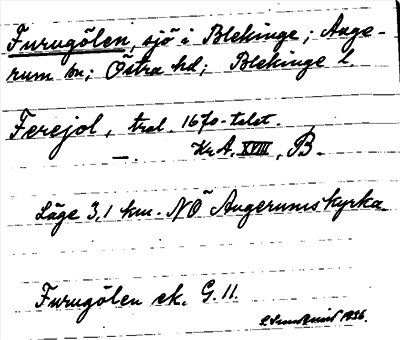 Furugölen, sjö i Blekinge; Auge-
rum sn; Östra hd; Blekinge l.
Ferejol, trol. 1670-talet.
— . Kr. A. XVIII, B.
Läge 3,1 km. NÖ Augerums kyrka.
Furugölen ek. G. 11.
1936.